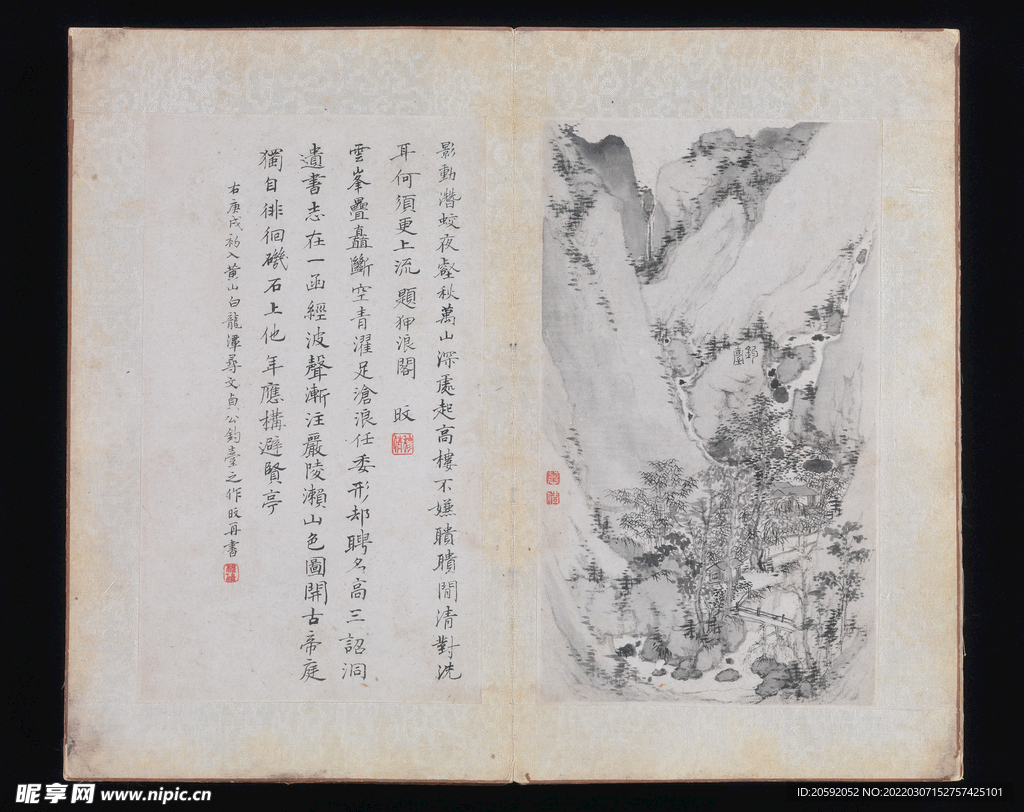 影動潛蛟夜壑秋萬山深處起高樓不嫌聵聵閒清對洗
耳何須更上流 題狎浪閣 旼
雲峯疊矗斷空青濯足滄浪任委形却聘名高三詔洞
遺書志在一函經波聲漸注嚴陵瀨山色圖開古帝庭
獨自徘徊磯石上他年應構避賢亭
右庚戌初入黃山白龍潭尋文貞公釣臺之作旼再書
昵享网 www.nipic.cn
ID:20592052 NO:20220307152757425101